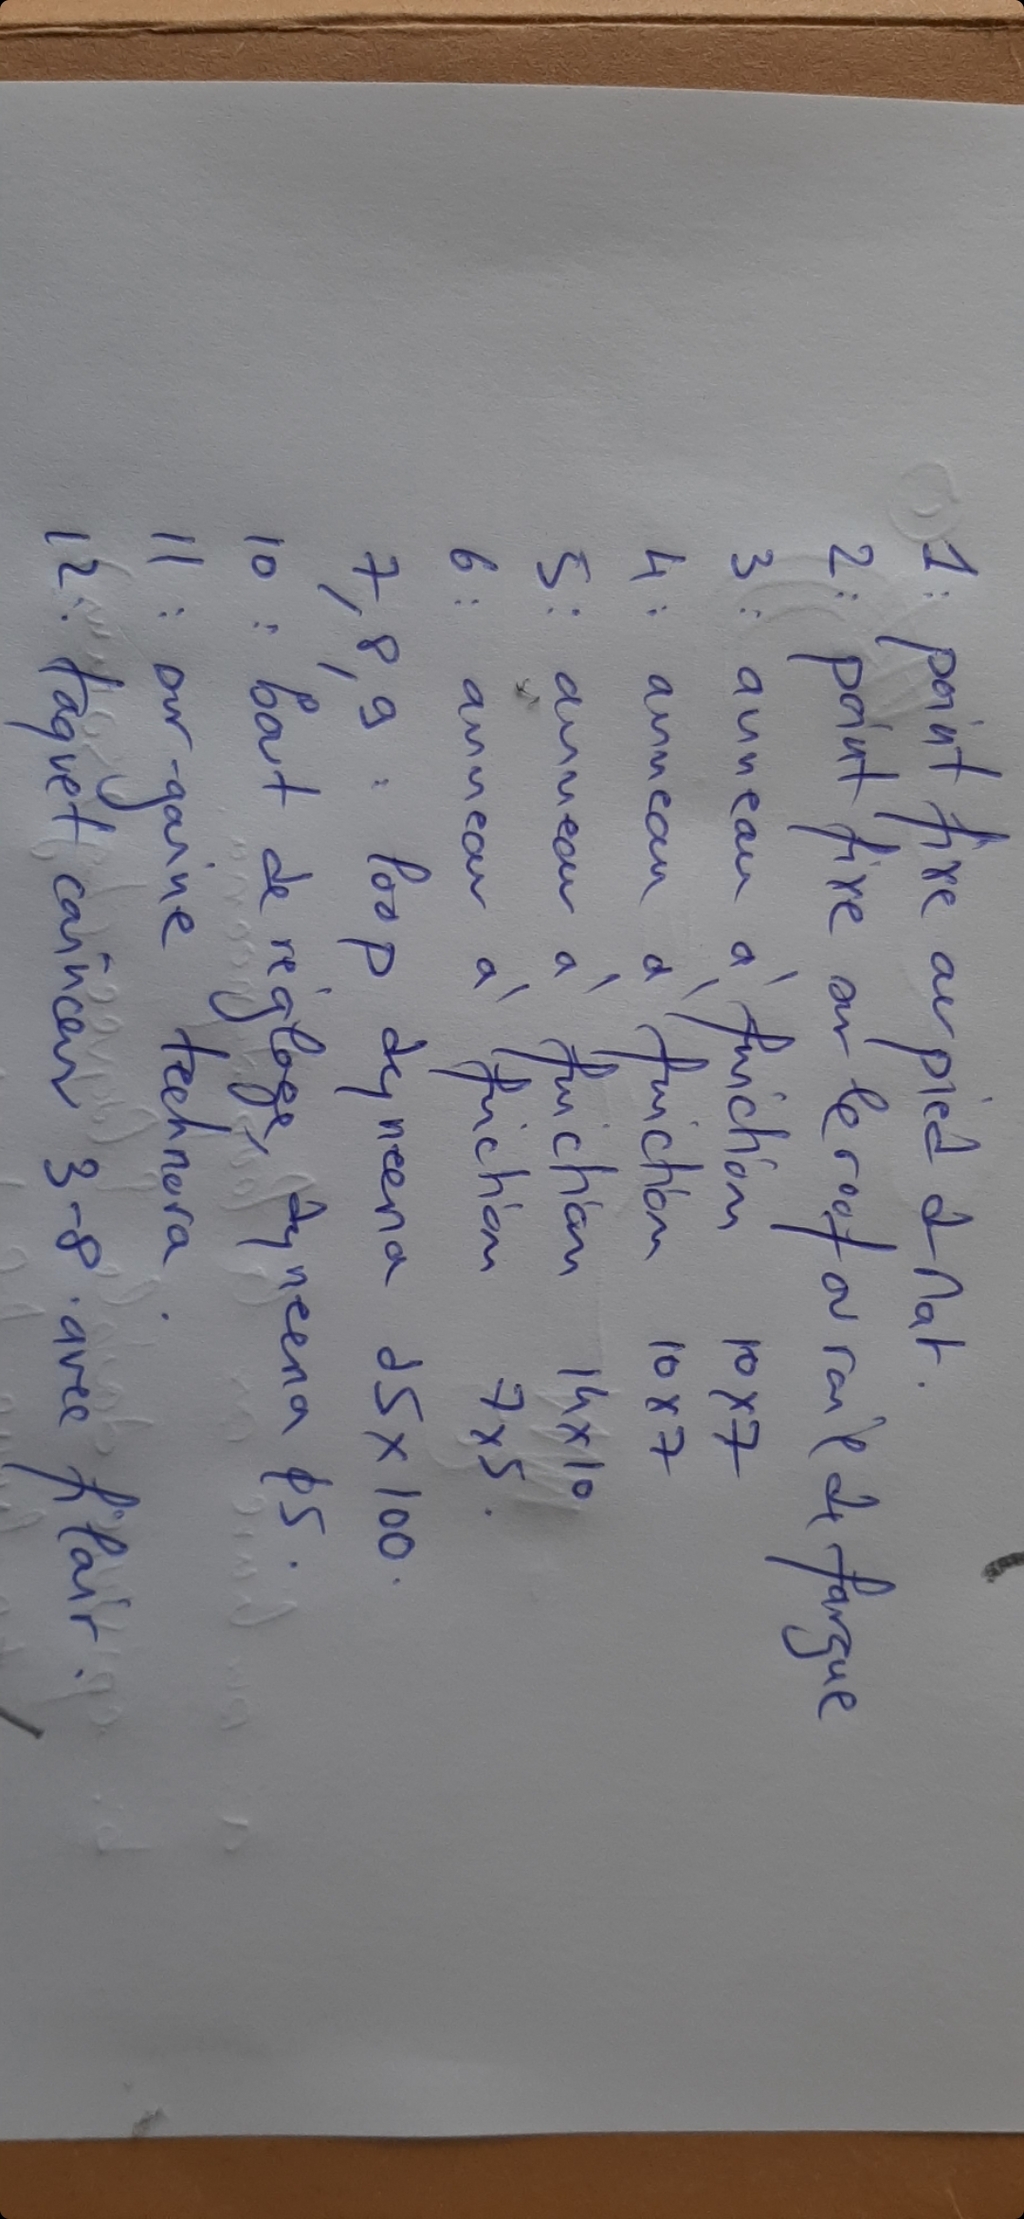 1: point fixe au pied d-mat.
2: point fixe sur le roof ou rail de fargue
3: anneau à friction 10x7
4: anneau à friction 10x7
5: anneau à friction 14x10
6: anneau à friction 7x5.
7, 8, 9: loop dyneena d5x100.
10: bout de réglage, dyneena ϕ5.
11: sur-gaine technora.
12: taquet coinceur 3-8 avec filoir.